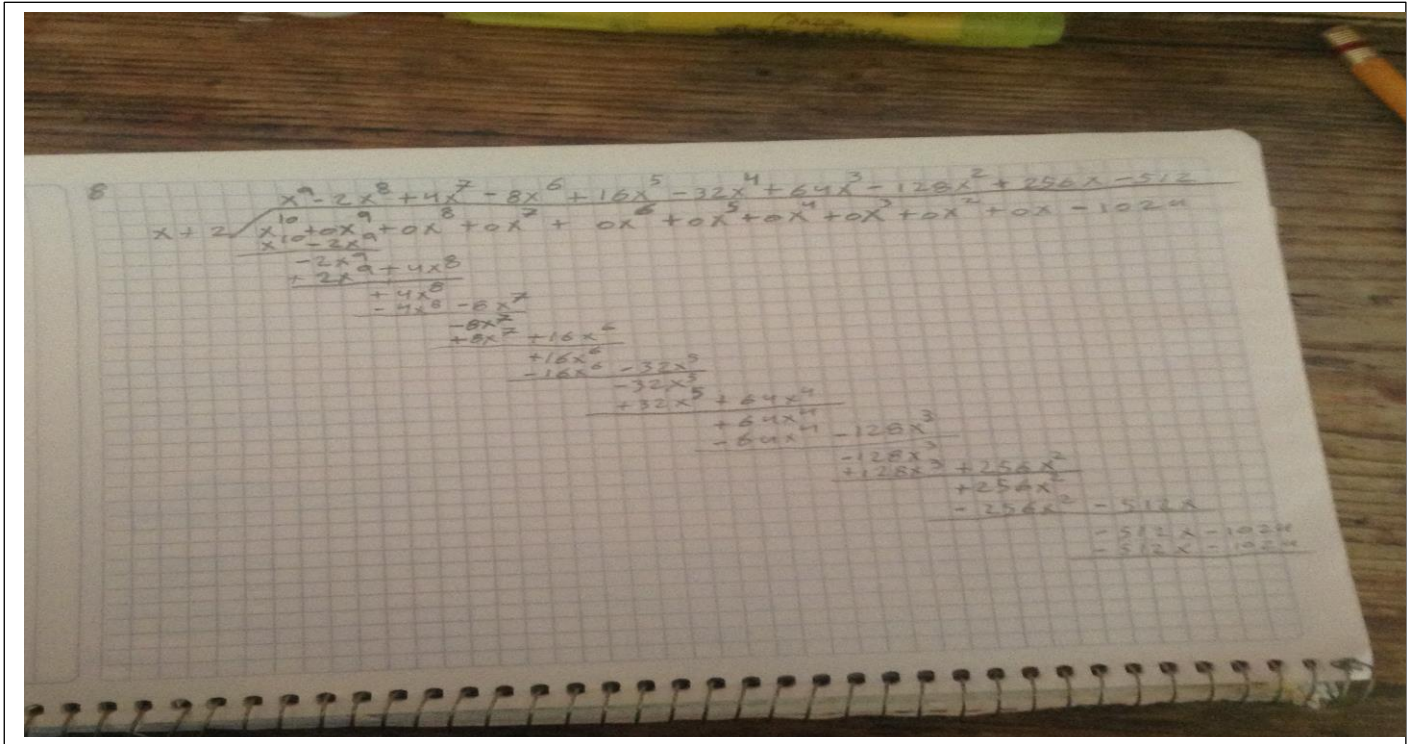 8
x⁹ - 2x⁸ + 4x⁷ - 8x⁶ + 16x⁵ - 32x⁴ + 64x³ - 128x² + 256x - 512
x + 2 x¹⁰ + 0x⁹ + 0x⁸ + 0x⁷ + 0x⁶ + 0x⁵ + 0x⁴ + 0x³ + 0x² + 0x - 1024
x¹⁰ - 2x⁹
- 2x⁹
+ 2x⁹ + 4x⁸
+ 4x⁸
- 4x⁸ - 8x⁷
- 8x⁷
+ 8x⁷ + 16x⁶
+ 16x⁶
- 16x⁶ - 32x⁵
- 32x⁵
+ 32x⁵ + 64x⁴
+ 64x⁴
- 64x⁴ - 128x³
- 128x³
+ 128x³ + 256x²
+ 256x²
- 256x² - 512x
- 512x - 1024
- 512x - 1024